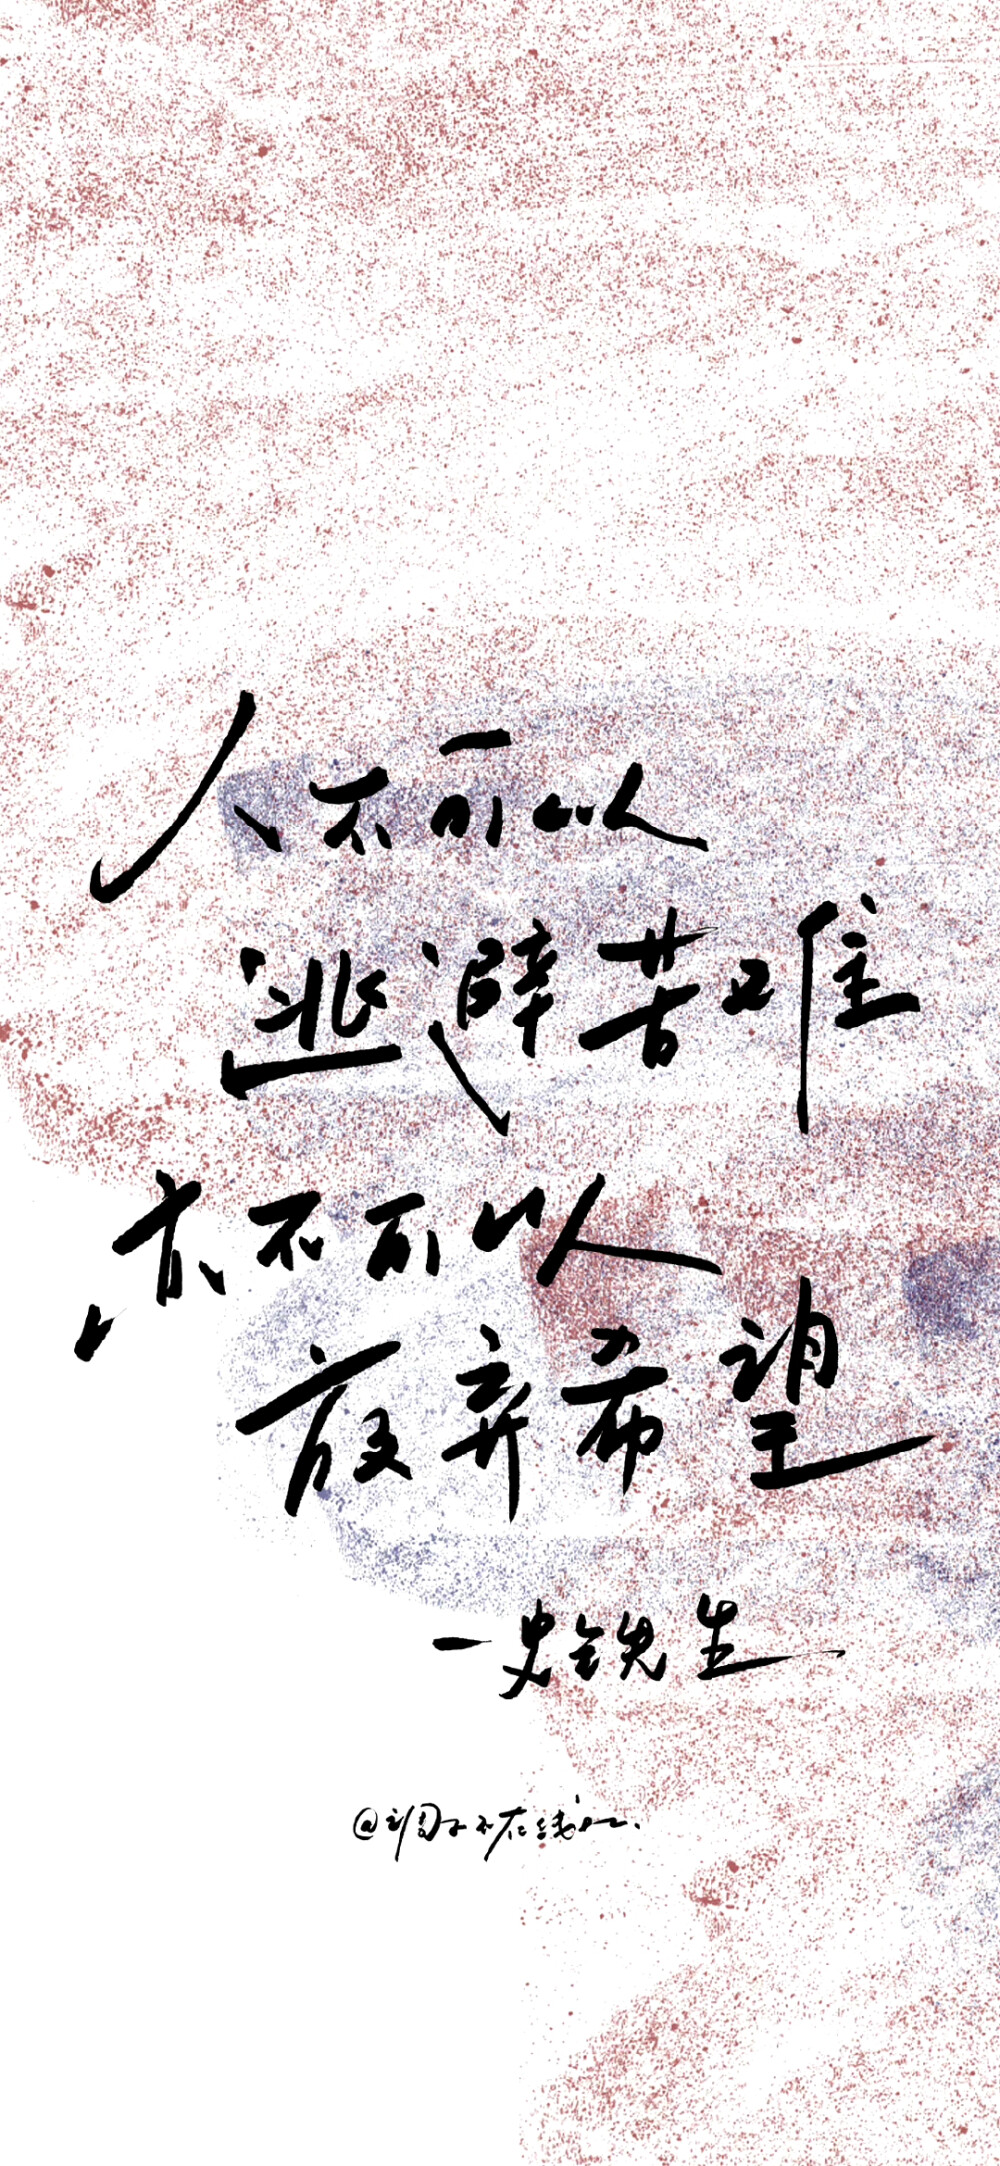 人不可以
逃避苦难
亦不可以
放弃希望
—史铁生
@ 不在线